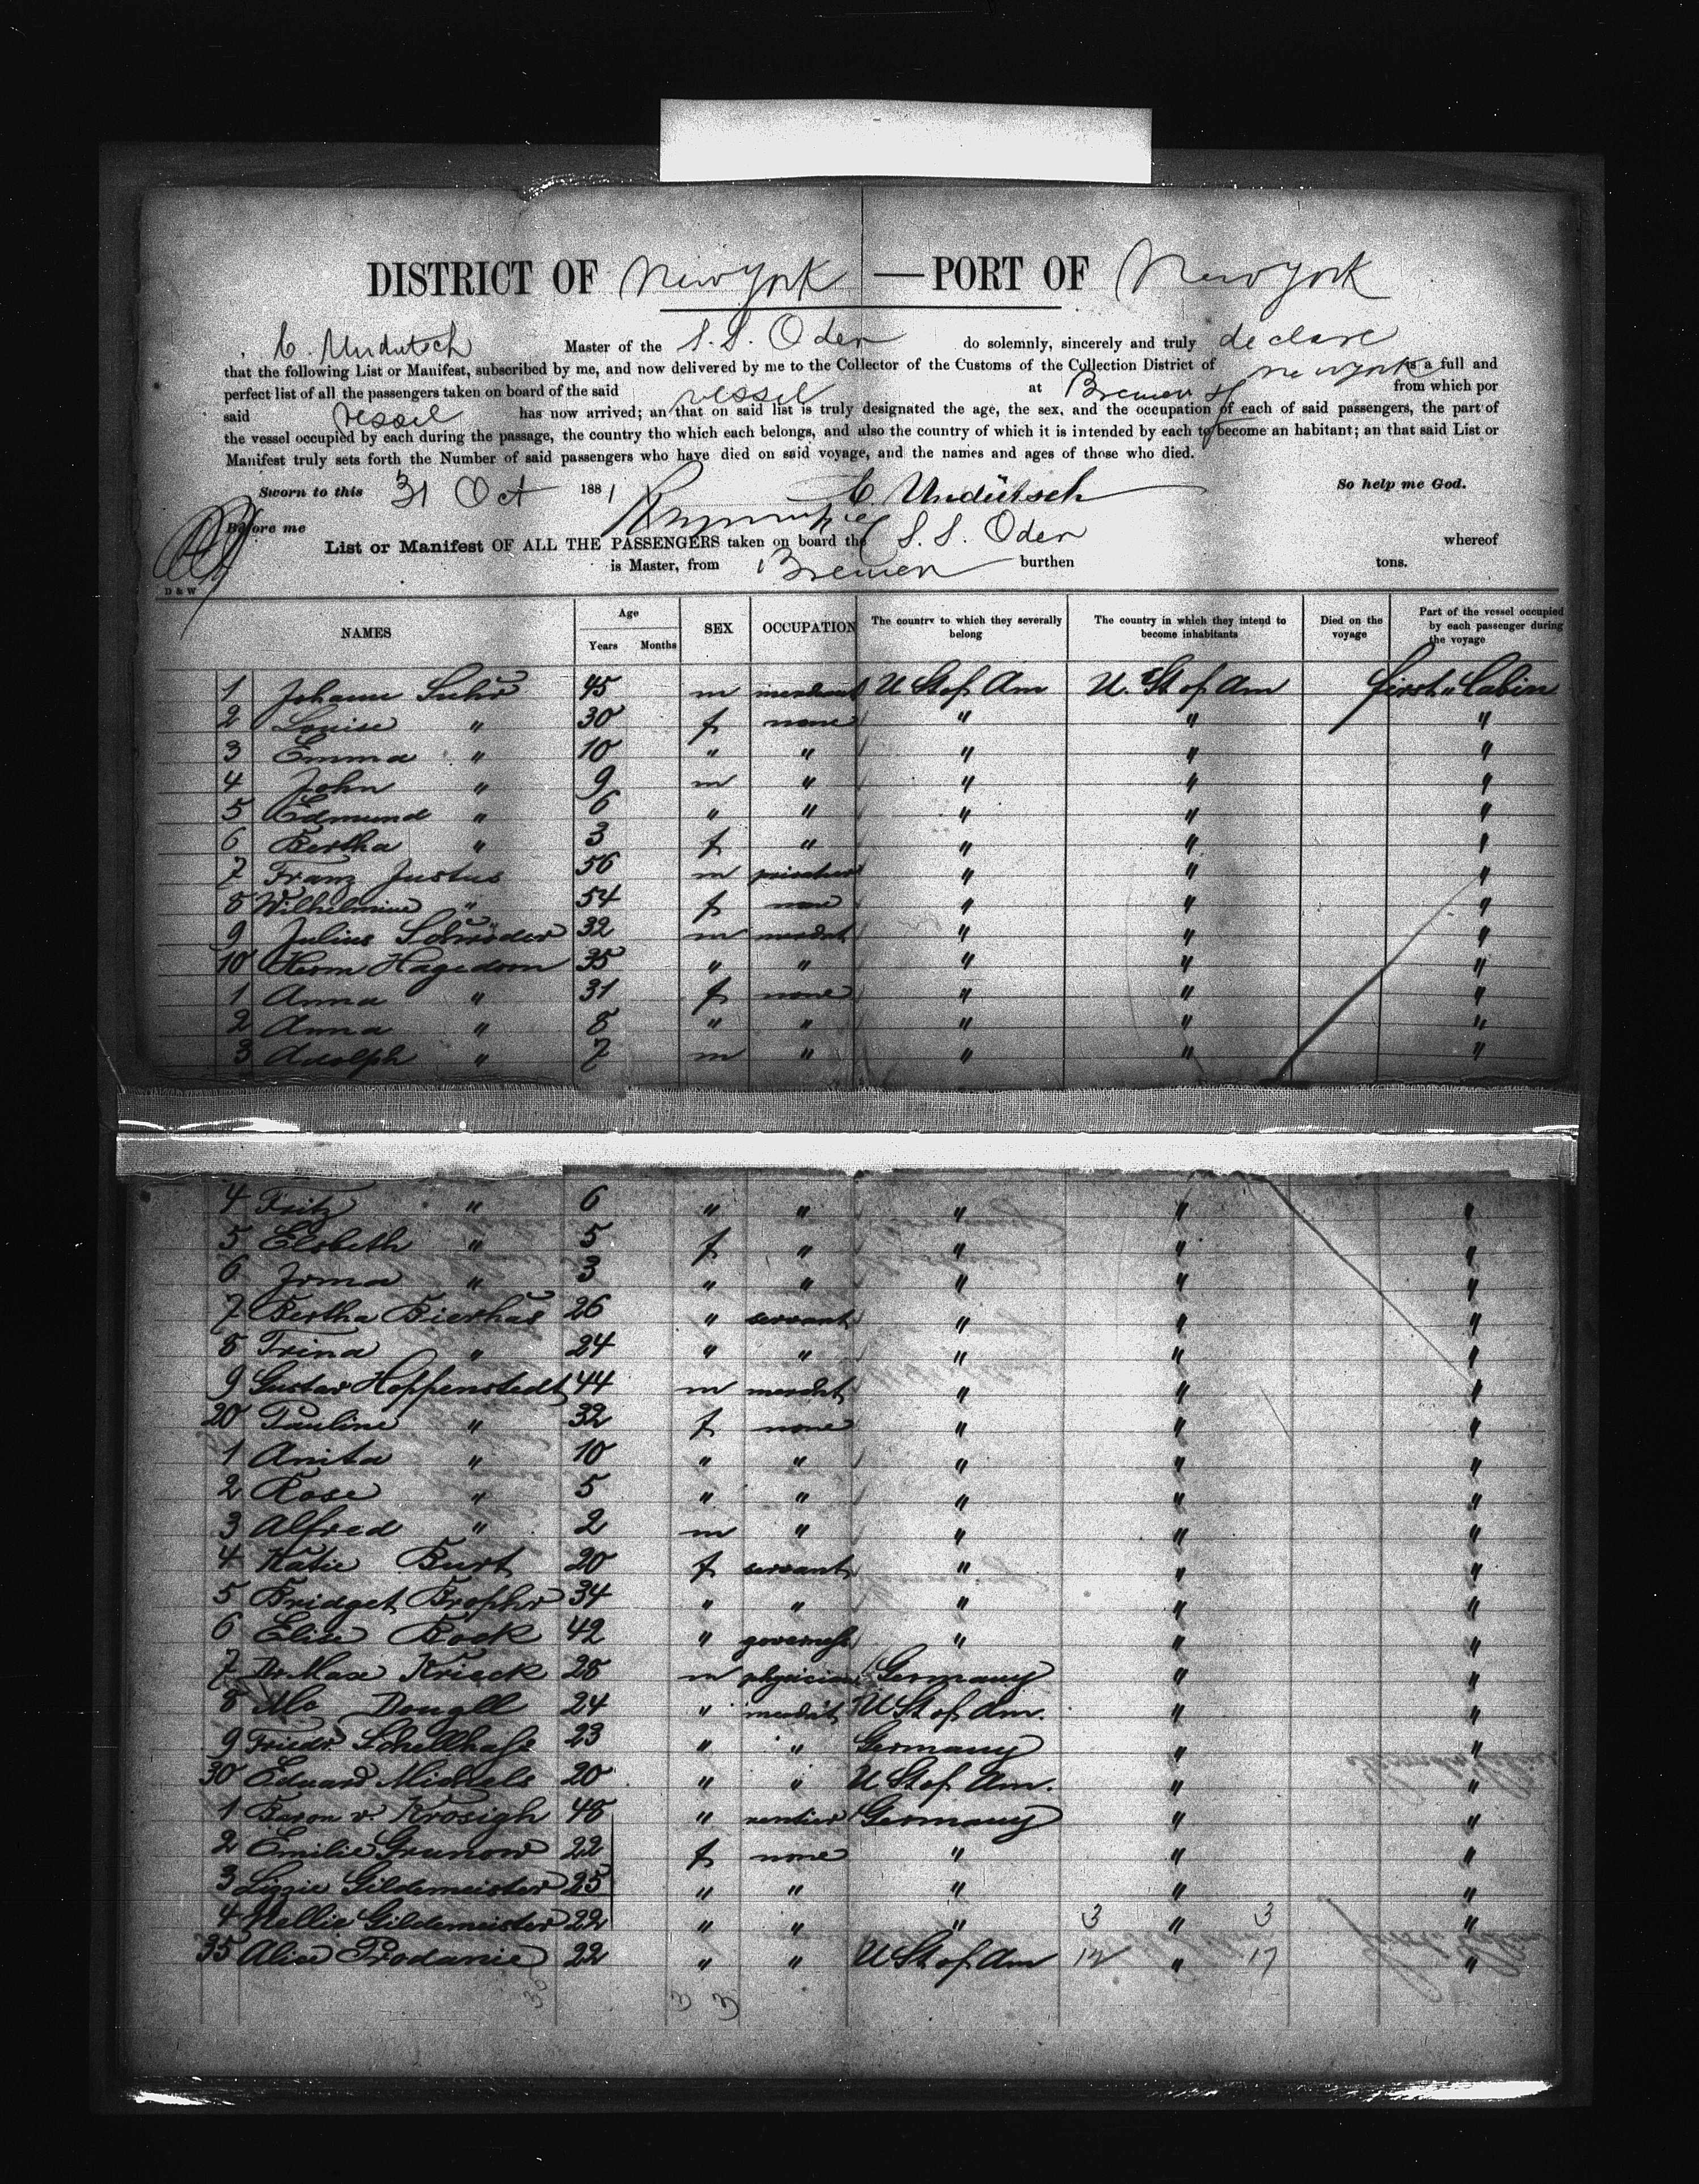 DISTRICT OF New York — PORT OF New York
C. Undutsch Master of the S.S. Oder do solemnly, sincerely and truly declare
that the following List or Manifest, subscribed by me, and now delivered by me to the Collector of the Customs of the Collection District of New York is a full and
perfect list of all the passengers taken on board of the said vessel at Bremen from which por
said vessel has now arrived; an that on said list is truly designated the age, the sex, and the occupation of each of said passengers, the part of
the vessel occupied by each during the passage, the country tho which each belongs, and also the country of which it is intended by each to become an habitant; an that said List or
Manifest truly sets forth the Number of said passengers who have died on said voyage, and the names and ages of those who died.
Sworn to this 31 Oct 1881 C. Undütsch So help me God.
Before me
List or Manifest OF ALL THE PASSENGERS taken on board the S.S. Oder whereof
is Master, from Bremen burthen tons.
D & W
NAMES Age Years Months SEX OCCUPATION The country to which they severally belong The country in which they intend to become inhabitants Died on the voyage Part of the vessel occupied by each passenger during the voyage
1 Johann Suhr 45 m merchant U St of Am U. St of Am first Cabin
2 Louise " 30 f none " " "
3 Emma " 10 " " " " "
4 John " 9 m " " " "
5 Edmund " 6 " " " " "
6 Bertha " 3 f " " " "
7 Franz Justus 56 m " " "
8 Wilhelmine " 54 f none " " "
9 Julius Schröder 32 m merchat " " "
10 Herm Hagedorn 35 " " " " "
1 Anna " 31 f none " " "
2 Anna " 8 " " " " "
3 Adolph " 7 m " " " "
4 Fritz " 6 " " " " "
5 Elsbeth " 5 f " " " "
6 Irma " 3 " " " " "
7 Bertha Bierhus 26 " servant " " "
8 Trina " 24 " " " " "
9 Gustav Hoppenstedt 44 m merchat " " "
20 Pauline " 32 f none " " "
1 Anita " 10 " " " " "
2 Rose " 5 " " " " "
3 Alfred " 2 m " " " "
4 Katie Burt 20 f servant " " "
5 Bridget Brophr 34 " " " " "
6 Elise Bock 42 " governess " " "
7 Dr. Max Krieck 28 m physician Germany " "
8 Mc Dougll 24 " merchat U St of Am. " "
9 Friedr. Schellhass 23 " " Germany " "
30 Eduard Michels 20 " " U. St of Am. " "
1 Baron v. Krosigh 48 " rentier Germany " "
2 Emilie Grunow 22 f none " " "
3 Lizzie Gildemeister 25 " " " " "
4 Nellie Gildemeister 22 " " " 3 " 3 "
35 Alice Prodanie 22 " " U St of Am 12 " 17 "
3 3